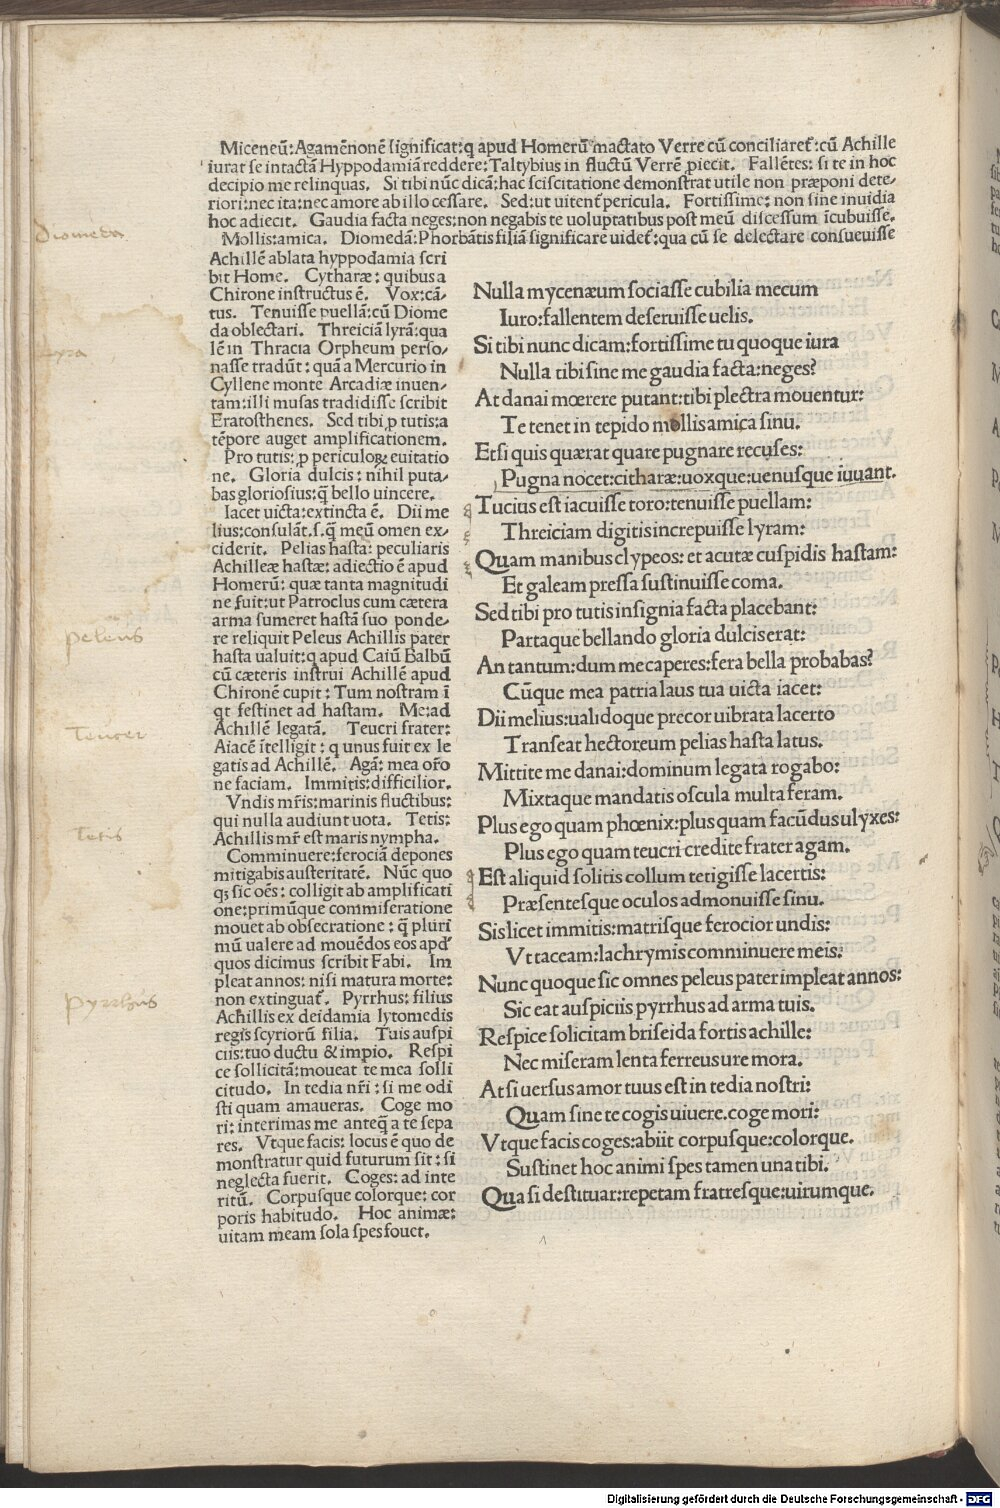 Miceneū: Agamēnonē significat: q apud Homerū mactato Verre cū conciliaret: cū Achille
iurat se intactā Hyppodamiā reddere: Taltybius in fluctū Verrē piecit. Fallētes: si te in hoc
decipio me relinquas. Si tibi nūc dicā: hac sciscitatione demonstrat utile non præponi dete-
riori: nec ita: nec amore ab illo cessare. Sed: ut uitent pericula. Fortissime: non sine inuidia
hoc adiecit. Gaudia facta neges: non negabis te uoluptatibus post meū discessum īcubuisse.
Mollis: amica. Diomedā: Phorbātis filiā significare uidet: qua cū se delectare consueuisse
Diomeda
Achillē ablata hyppodamia scri
bit Home. Cytharæ: quibus a
Chirone instructus ē. Vox: cā-
tus. Tenuisse puellā: cū Diome
da oblectari. Threiciā lyrā: qua
lē in Thracia Orpheum perso-
nasse tradūt: quā a Mercurio in
Cyllene monte Arcadiæ inuen-
tam: illi musas tradidisse scribit
Eratosthenes. Sed tibi p tutis: a
tēpore auget amplificationem.
Pro tutis: p periculoꝝ euitatio
ne. Gloria dulcis: nihil puta-
bas gloriosius: q̄ bello uincere.
Iacet uicta: extincta ē. Dii me
lius: consulāt. s. q̄ meū omen ex-
ciderit. Pelias hasta: peculiaris
Achilleæ hastæ: adiectio ē apud
Homerū: quæ tanta magnitudi
ne fuit: ut Patroclus cum cætera
arma sumeret hastā suo ponde-
re reliquit Peleus Achillis pater
hasta ualuit: q apud Caiū Balbū
cū cæteris instrui Achillē apud
Chironē cupit: Tum nostram ī
qt festinet ad hastam. Me: ad
Achillē legatā. Teucri frater:
Aiacē ītelligit: q unus fuit ex le
gatis ad Achillē. Agā: mea oro
ne faciam. Immitis: difficilior.
Vndis mr̄is: marinis fluctibus:
qui nulla audiunt uota. Tetis:
Achillis mr̄ est maris nympha.
Comminuere: ferociā depones
mitigabis austeritatē. Nūc quo
qꝫ sic oēs: colligit ab amplificati
one: primūque commiseratione
mouet ab obsecratione: q̄ pluri
mū ualere ad mouēdos eos apd
quos dicimus scribit Fabi. Im
pleat annos: nisi matura morte:
non extinguat. Pyrrhus: filius
Achillis ex deidamia lytomedis
regis scyriorū filia. Tuis auspi
ciis: tuo ductu & impio. Respi
ce sollicitā: moueat te mea solli
citudo. In tedia nr̄i: si me odi
sti quam amaueras. Coge mo
ri: interimas me anteq̄ a te sepa
res. Vtque facis: locus ē quo de
monstratur quid futurum sit: si
neglecta fuerit. Coges: ad inte
ritū. Corpusque colorque: cor
poris habitudo. Hoc animæ:
uitam meam sola spes fouet.
lyra
peleus
Teucer
Tetis
pyrrhus
Nulla mycenæum sociasse cubilia mecum
Iuro: fallentem deseruisse uelis.
Si tibi nunc dicam: fortissime tu quoque iura
Nulla tibi sine me gaudia facta: neges?
At danai mœrere putant: tibi plectra mouentur:
Te tenet in tepido mollis amica sinu.
Et si quis quærat quare pugnare recuses:
Pugna nocet: citharæ: uoxque: uenusque iuuant.
Tucius est iacuisse toro: tenuisse puellam:
Threiciam digitis increpuisse lyram:
Quam manibus clypeos: et acutæ cuspidis hastam:
Et galeam pressa sustinuisse coma.
Sed tibi pro tutis insignia facta placebant:
Partaque bellando gloria dulcis erat:
An tantum: dum me caperes: fera bella probabas?
Cūque mea patria laus tua uicta iacet:
Dii melius: ualidoque precor uibrata lacerto
Transeat hectoreum pelias hasta latus.
Mittite me danai: dominum legata rogabo:
Mixtaque mandatis oscula multa feram.
Plus ego quam phœnix: plus quam facūdus ulyxes:
Plus ego quam teucri credite frater agam.
Est aliquid solitis collum tetigisse lacertis:
Præsentesque oculos admonuisse sinu.
Sis licet immitis: matrisque ferocior undis:
Vt taceam: lachrymis comminuere meis:
Nunc quoque sic omnes peleus pater impleat annos:
Sic eat auspiciis pyrrhus ad arma tuis.
Respice solicitam briseida fortis achille:
Nec miseram lenta ferreus ure mora.
At si uersus amor tuus est in tedia nostri:
Quam sine te cogis uiuere. coge mori:
Vtque facis coges: abiit corpusque: colorque.
Sustinet hoc animi spes tamen una tibi.
Qua si destituar: repetam fratresque: uirumque.
Digitalisierung gefördert durch die Deutsche Forschungsgemeinschaft - DFG